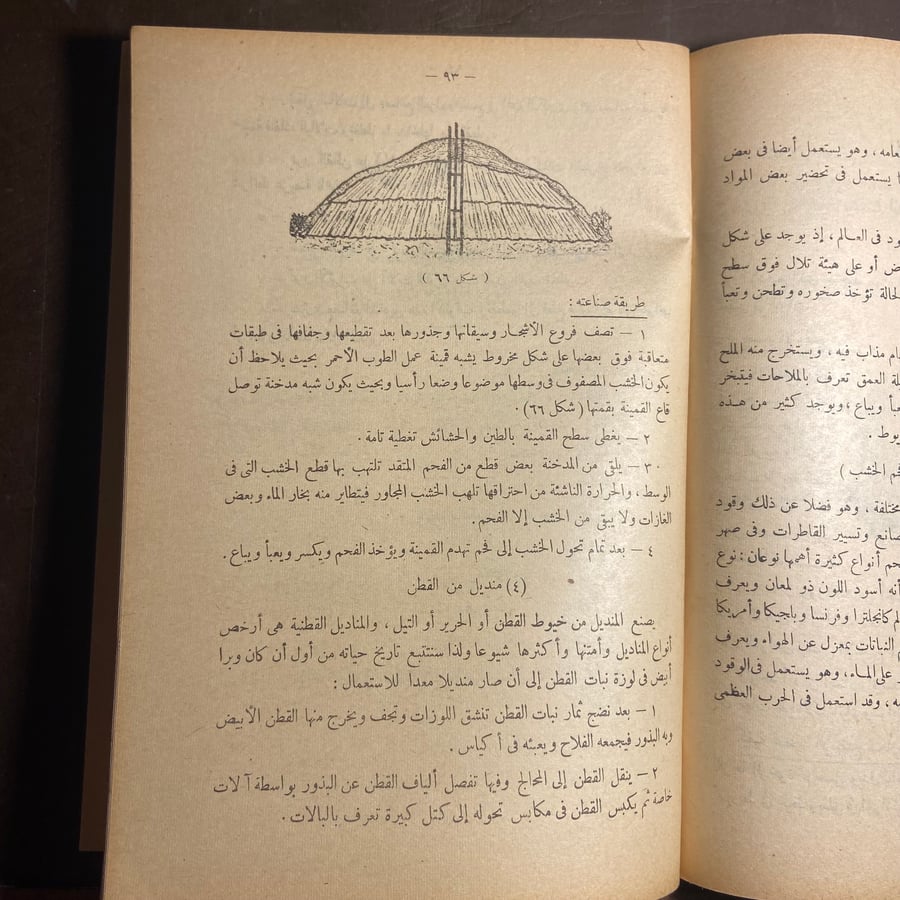 — ٩٣ —
( شكل ٦٦ )
طريقة صناعته :
١ — تصف فروع الأشجار وسيقانها وجذورها بعد تقطيعها وجفافها فى طبقات
متعاقبة فوق بعضها على شكل مخروط يشبه قمينة عمل الطوب الأحمر بحيث يلاحظ أن
يكون الخشب المصفوف فى وسطها موضوعا وضعا رأسيا وبحيث يكون شبه مدخنة توصل
قاع القمينة بقمتها ( شكل ٦٦ ) .
٢ — يغطى سطح القمينة بالطين والحشائش تغطية تامة .
٣ — يلقى من المدخنة بعض قطع من الفحم المتقد تلتهب بها قطع الخشب التى فى
الوسط ، والحرارة الناشئة من احتراقها تلهب الخشب المجاور فيتطاير منه بخار الماء وبعض
الغازات ولا يبقى من الخشب إلا الفحم .
٤ — بعد تمام تحول الخشب إلى فحم تهدم القمينة ويؤخذ الفحم ويكسر ويعبأ ويباع .
(٤) منديل من القطن
يصنع المنديل من خيوط القطن أو الحرير أو التيل ، والمناديل القطنية هى أرخص
أنواع المناديل وأمتنها وأكثرها شيوعا ولذا سنتتبع تاريخ حياته من أول أن كان وبرا
أبيض فى لوزة نبات القطن إلى أن صار منديلا معدا للاستعمال :
١ — بعد نضج ثمار نبات القطن تنشق اللوزات وتجف ويخرج منها القطن الأبيض
وبه البذور فيجمعه الفلاح ويعبئه فى أكياس .
٢ — ينقل القطن إلى المحالج وفيها تفصل ألياف القطن عن البذور بواسطة آلات
خاصة ثم يكبس القطن فى مكابس تحوله إلى كتل كبيرة تعرف بالبالات .
وهو يستعمل أيضا فى بعض
يستعمل فى تحضير بعض المواد
فى العالم ، إذ يوجد على شكل
أو على هيئة تلال فوق سطح
تؤخذ صخوره وتطحن وتعبأ
مذاب فيه ، ويستخرج منه الملح
العمق تعرف بالملاحات فيتبخر
ويباع ، ويوجد كثير من هذه
الخشب )
مختلفة ، وهو فضلا عن ذلك وقود
وتسيير القاطرات وفى صهر
أنواع كثيرة أهمها نوعان : نوع
أنه أسود اللون ذو لمعان ويعرف
كانجلترا وفرنسا وبلجيكا وأمريكا
النباتات بمعزل عن الهواء ويعرف
على الماء ، وهو يستعمل فى الوقود
، وقد استعمل فى الحرب العظمى